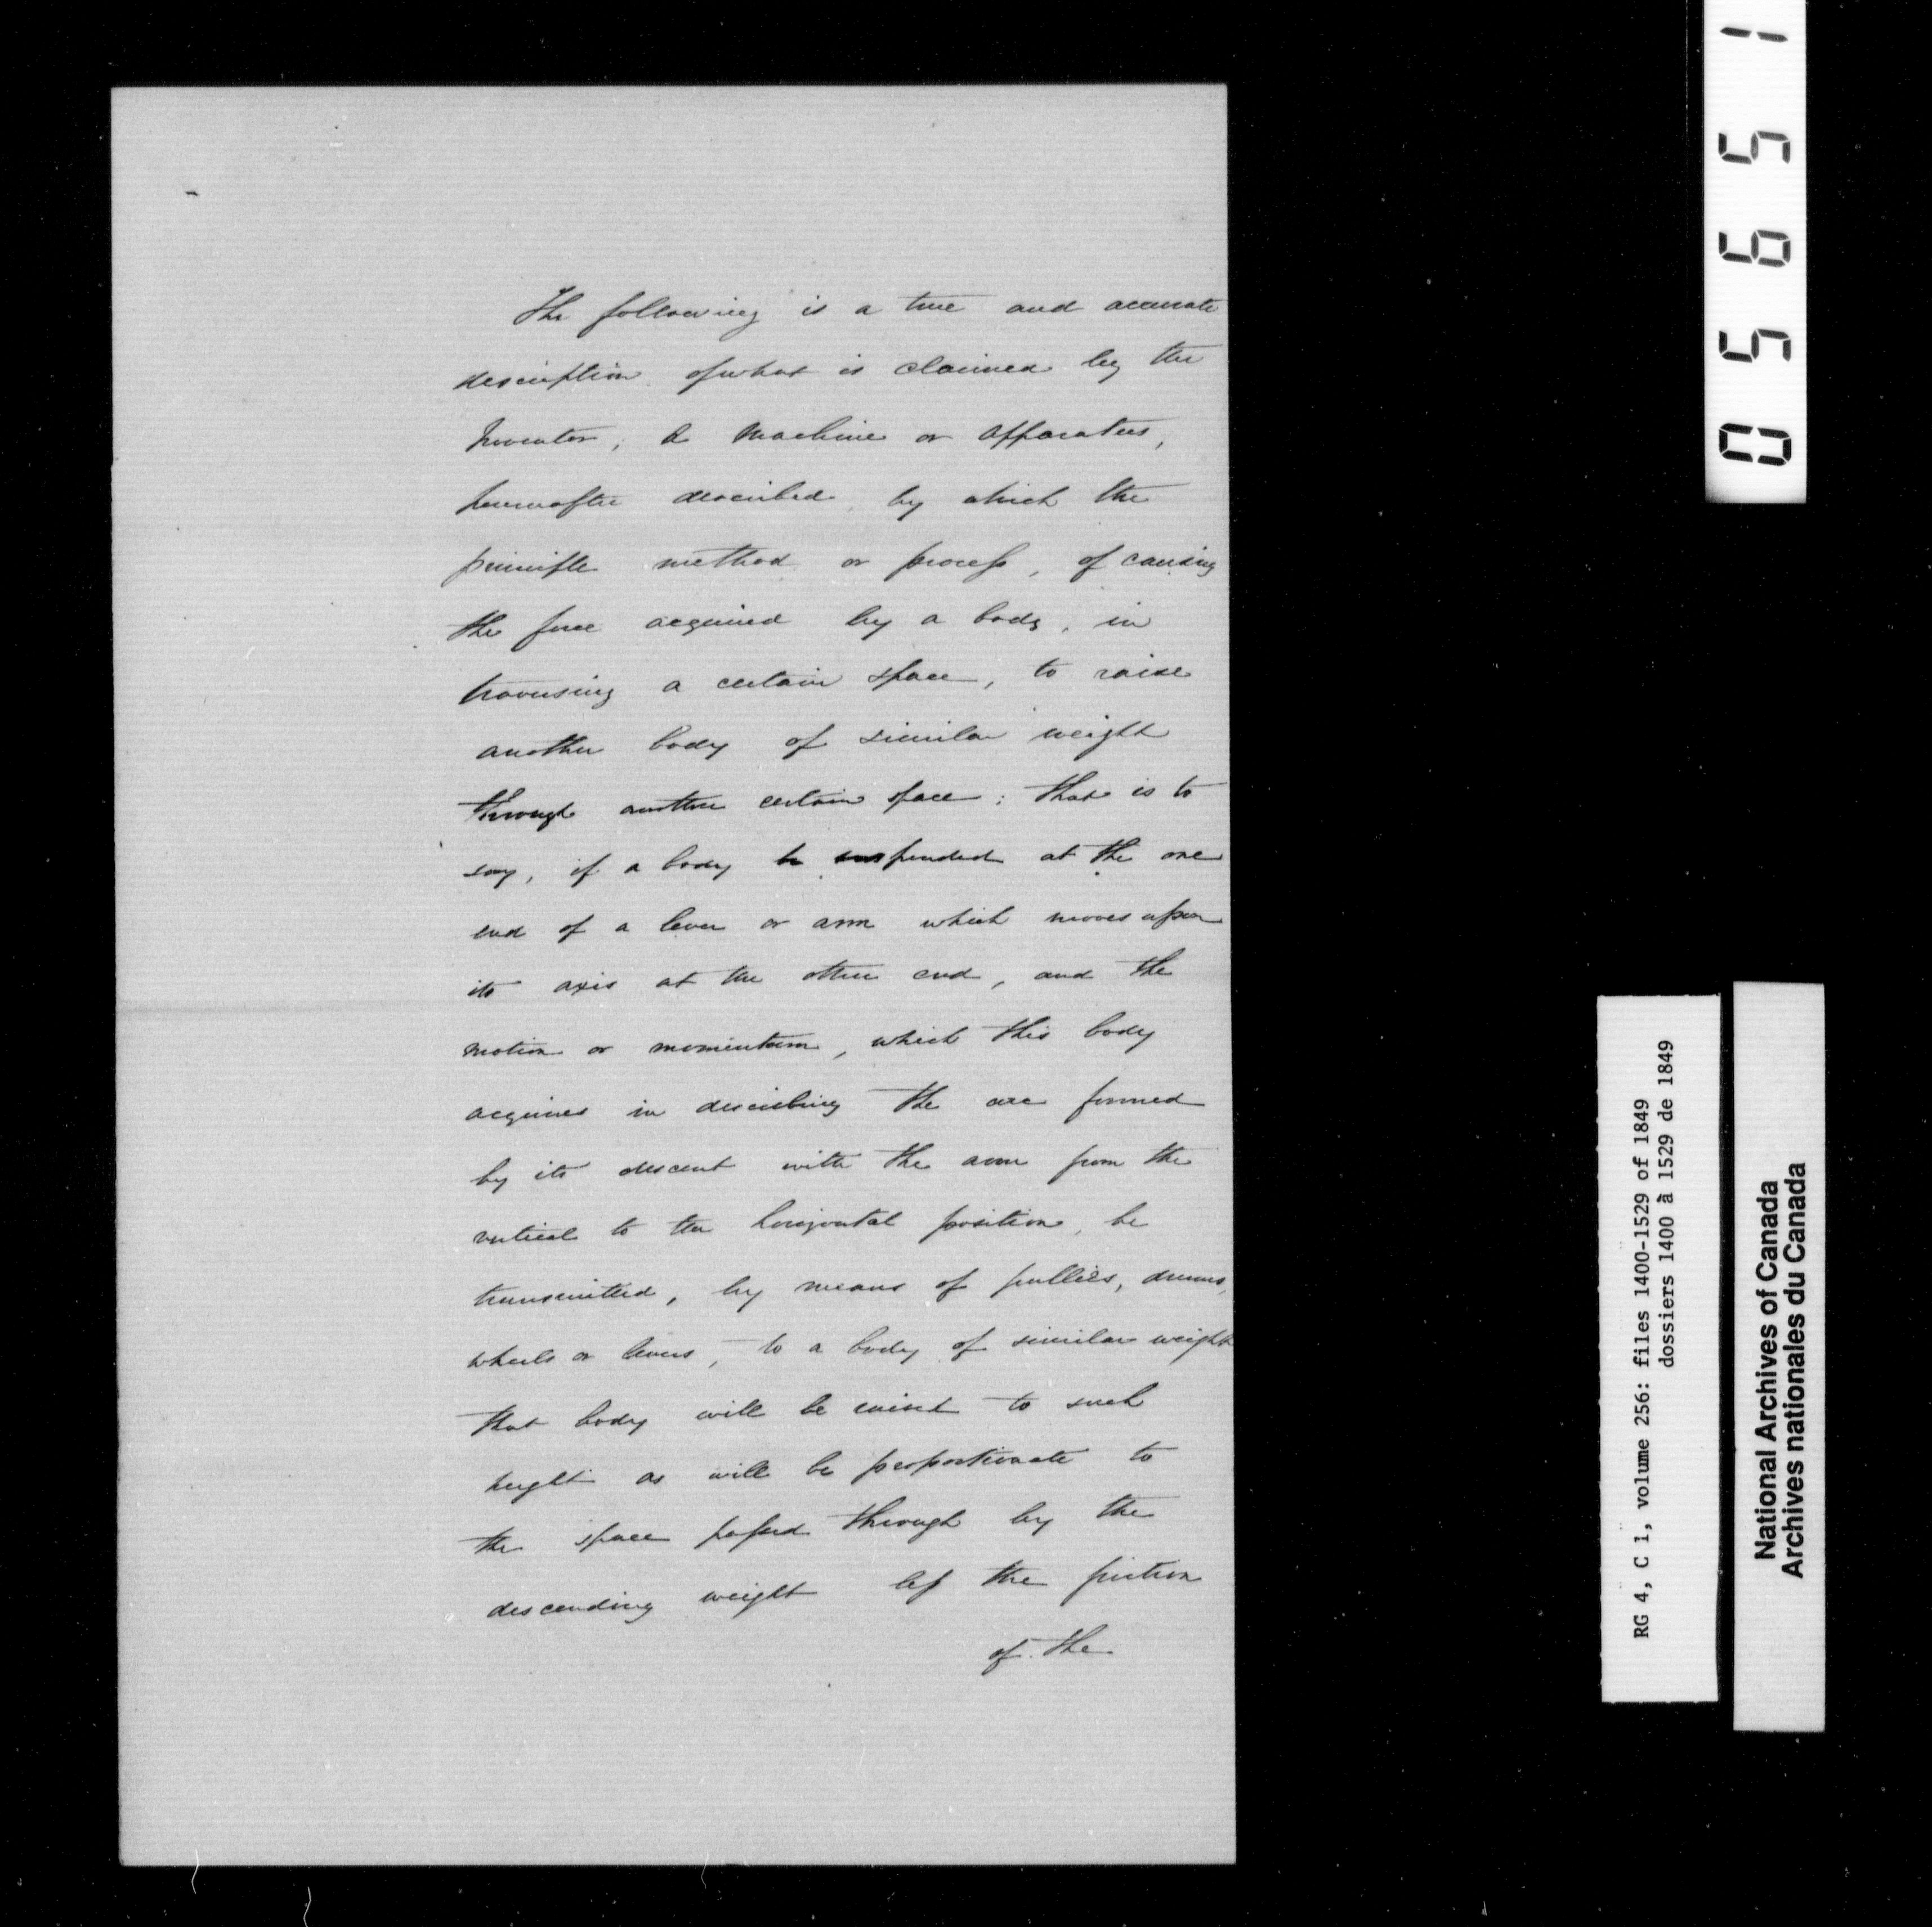 The following is a true and accurate
description of what is claimed by the
Inventor, a Machine or Apparatus,
hereinafter described, by which the
principle method or process, of causing
the force acquired by a body, in
traversing a certain space, to raise
another body of similar weight
through another certain space: that is to
say, if a body be suspended at the one
end of a lever or arm which moves upon
its axis at the other end, and the
motion or momentum, which this body
acquires in describing the arc formed
by its descent with the arm from the
vertical to the horizontal position, be
transmitted, by means of pullies, drums,
wheels or levers, to a body of similar weight
that body will be raised to such
height as will be proportionate to
the space passed through by the
descending weight less the friction
of the
05651
RG 4, C 1, volume 256: files 1400-1529 of 1849
dossiers 1400 à 1529 de 1849
National Archives of Canada
Archives nationales du Canada